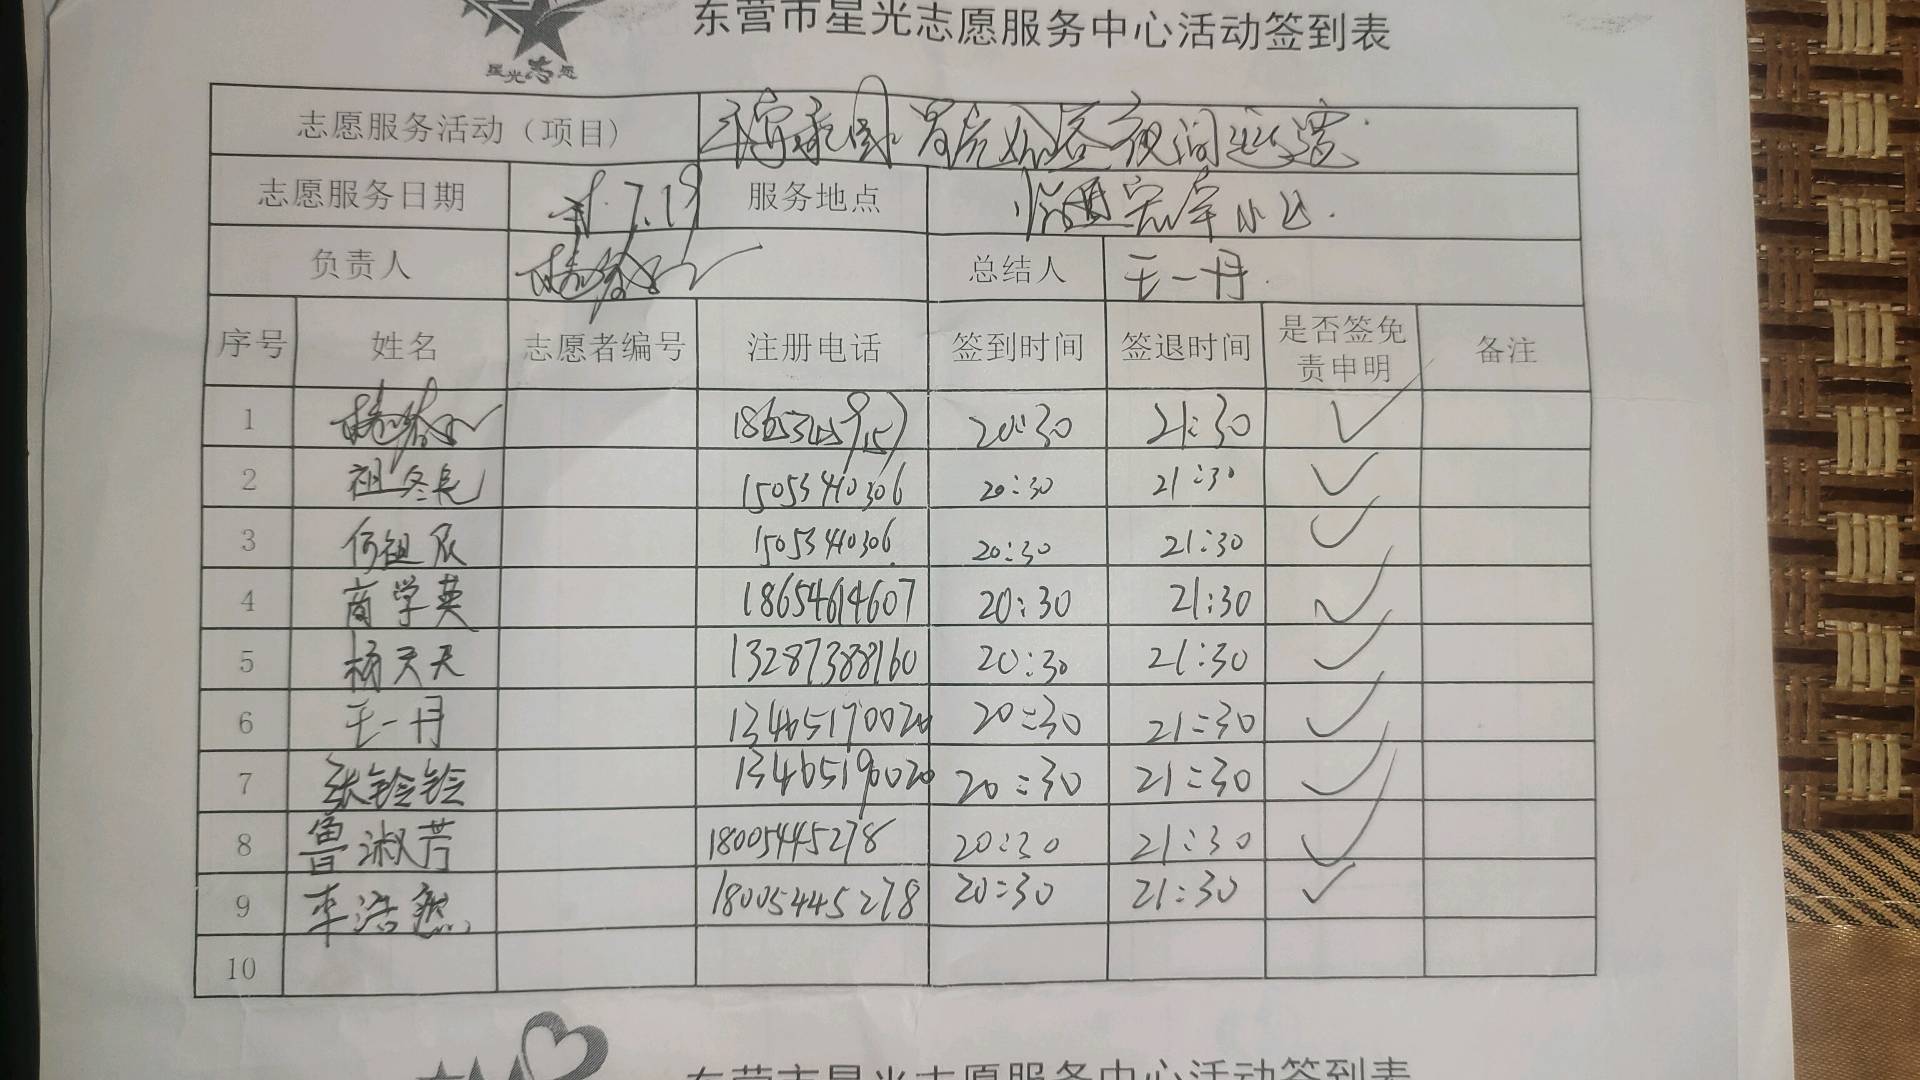 东营市星光志愿服务中心活动签到表
星光志愿
志愿服务活动（项目)
夜间巡逻
志愿服务日期 7.19 服务地点 小区.
负责人 总结人 王一丹.
序号 姓名 志愿者编号 注册电话 签到时间 签退时间 是否签免责申明 备注
1 20:30 21:30 ✓
2 祖冬长 15053410306 20:30 21:30 ✓
3 何祖辰 15053410306 20:30 21:30 ✓
4 商学英 18654614607 20:30 21:30 ✓
5 杨天天 13287388160 20:30 21:30 ✓
6 王一丹 13465170020 20:30 21:30 ✓
7 张铃铃 13465190020 20:30 21:30 ✓
8 鲁淑芳 18005445278 20:30 21:30 ✓
9 李浩然 18005445278 20:30 21:30 ✓
10
东营市星光志愿服务中心活动签到表